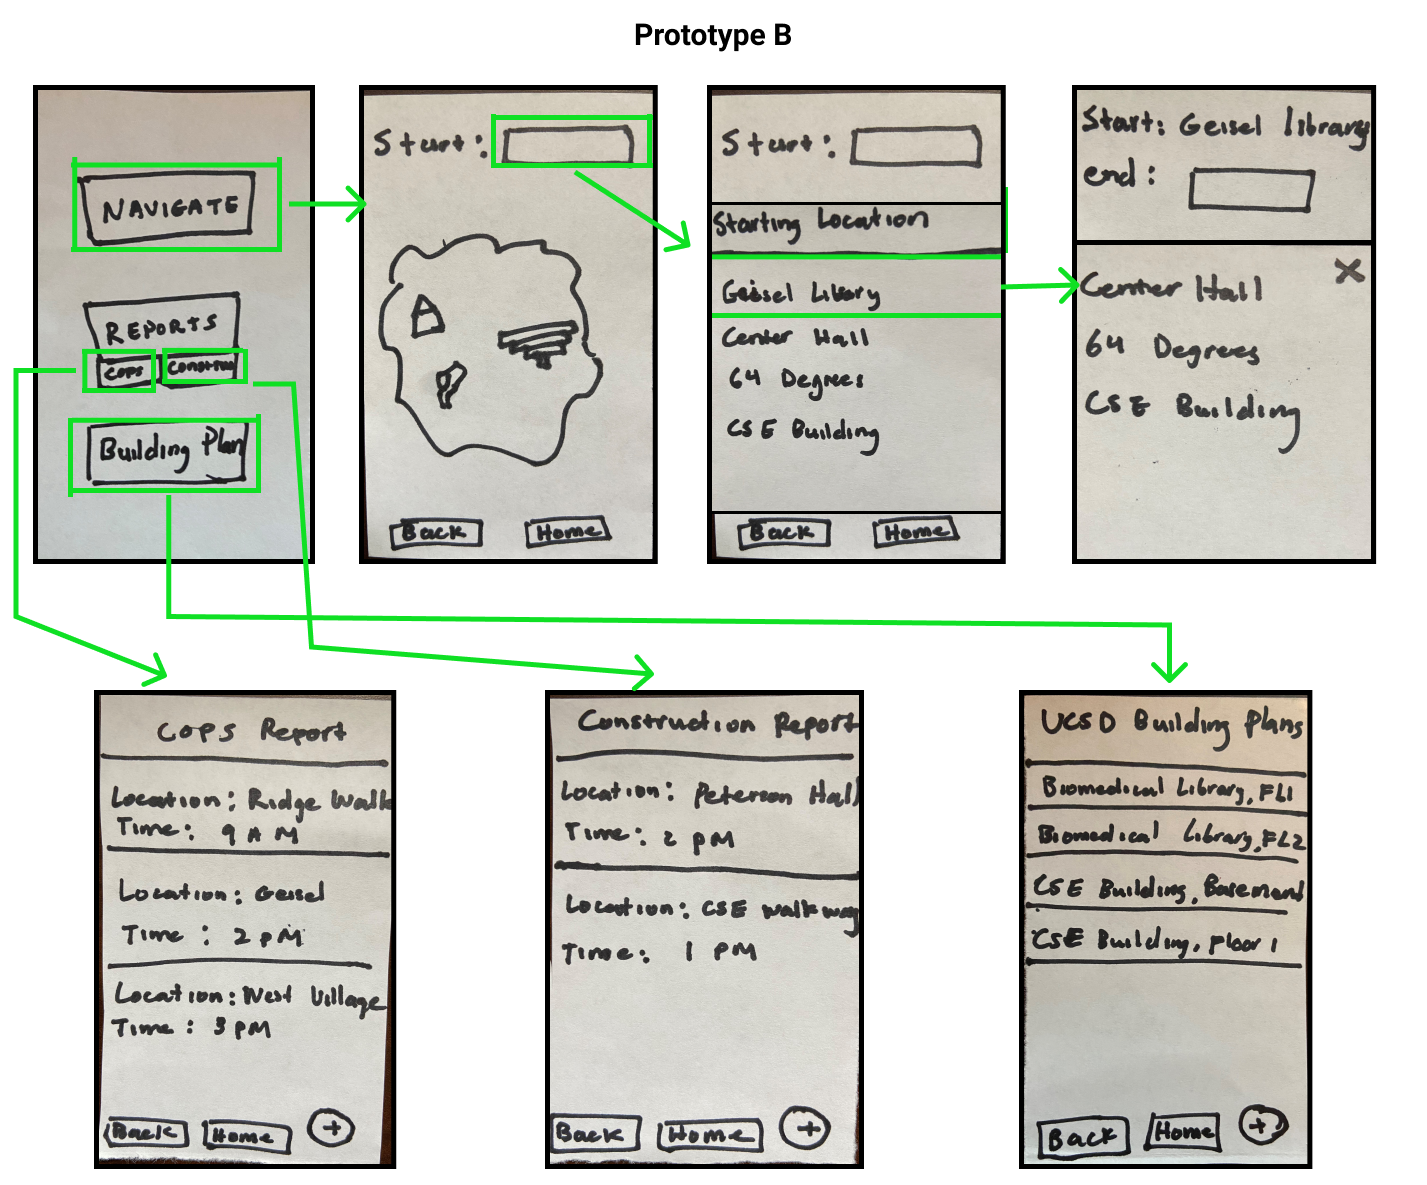 Prototype B
NAVIGATE
REPORTS
COPS
Construc
Building Plan
Start:
Back
Home
Start:
Starting Location
Geisel Library
Center Hall
64 Degrees
CSE Building
Back
Home
Start: Geisel library
end:
X
Center Hall
64 Degrees
CSE Building
COPS Report
Location: Ridge Walk
Time: 9 AM
Location: Geisel
Time : 2 PM
Location: West Village
Time : 3 PM
Back
Home
+
Construction Report
Location: Peterson Hall
Time: 2 PM
Location: CSE walkway
Time: 1 PM
Back
Home
+
UCSD Building Plans
Biomedical Library, FL1
Biomedical Library, FL2
CSE Building, Basement
CSE Building, Floor 1
Back
Home
+